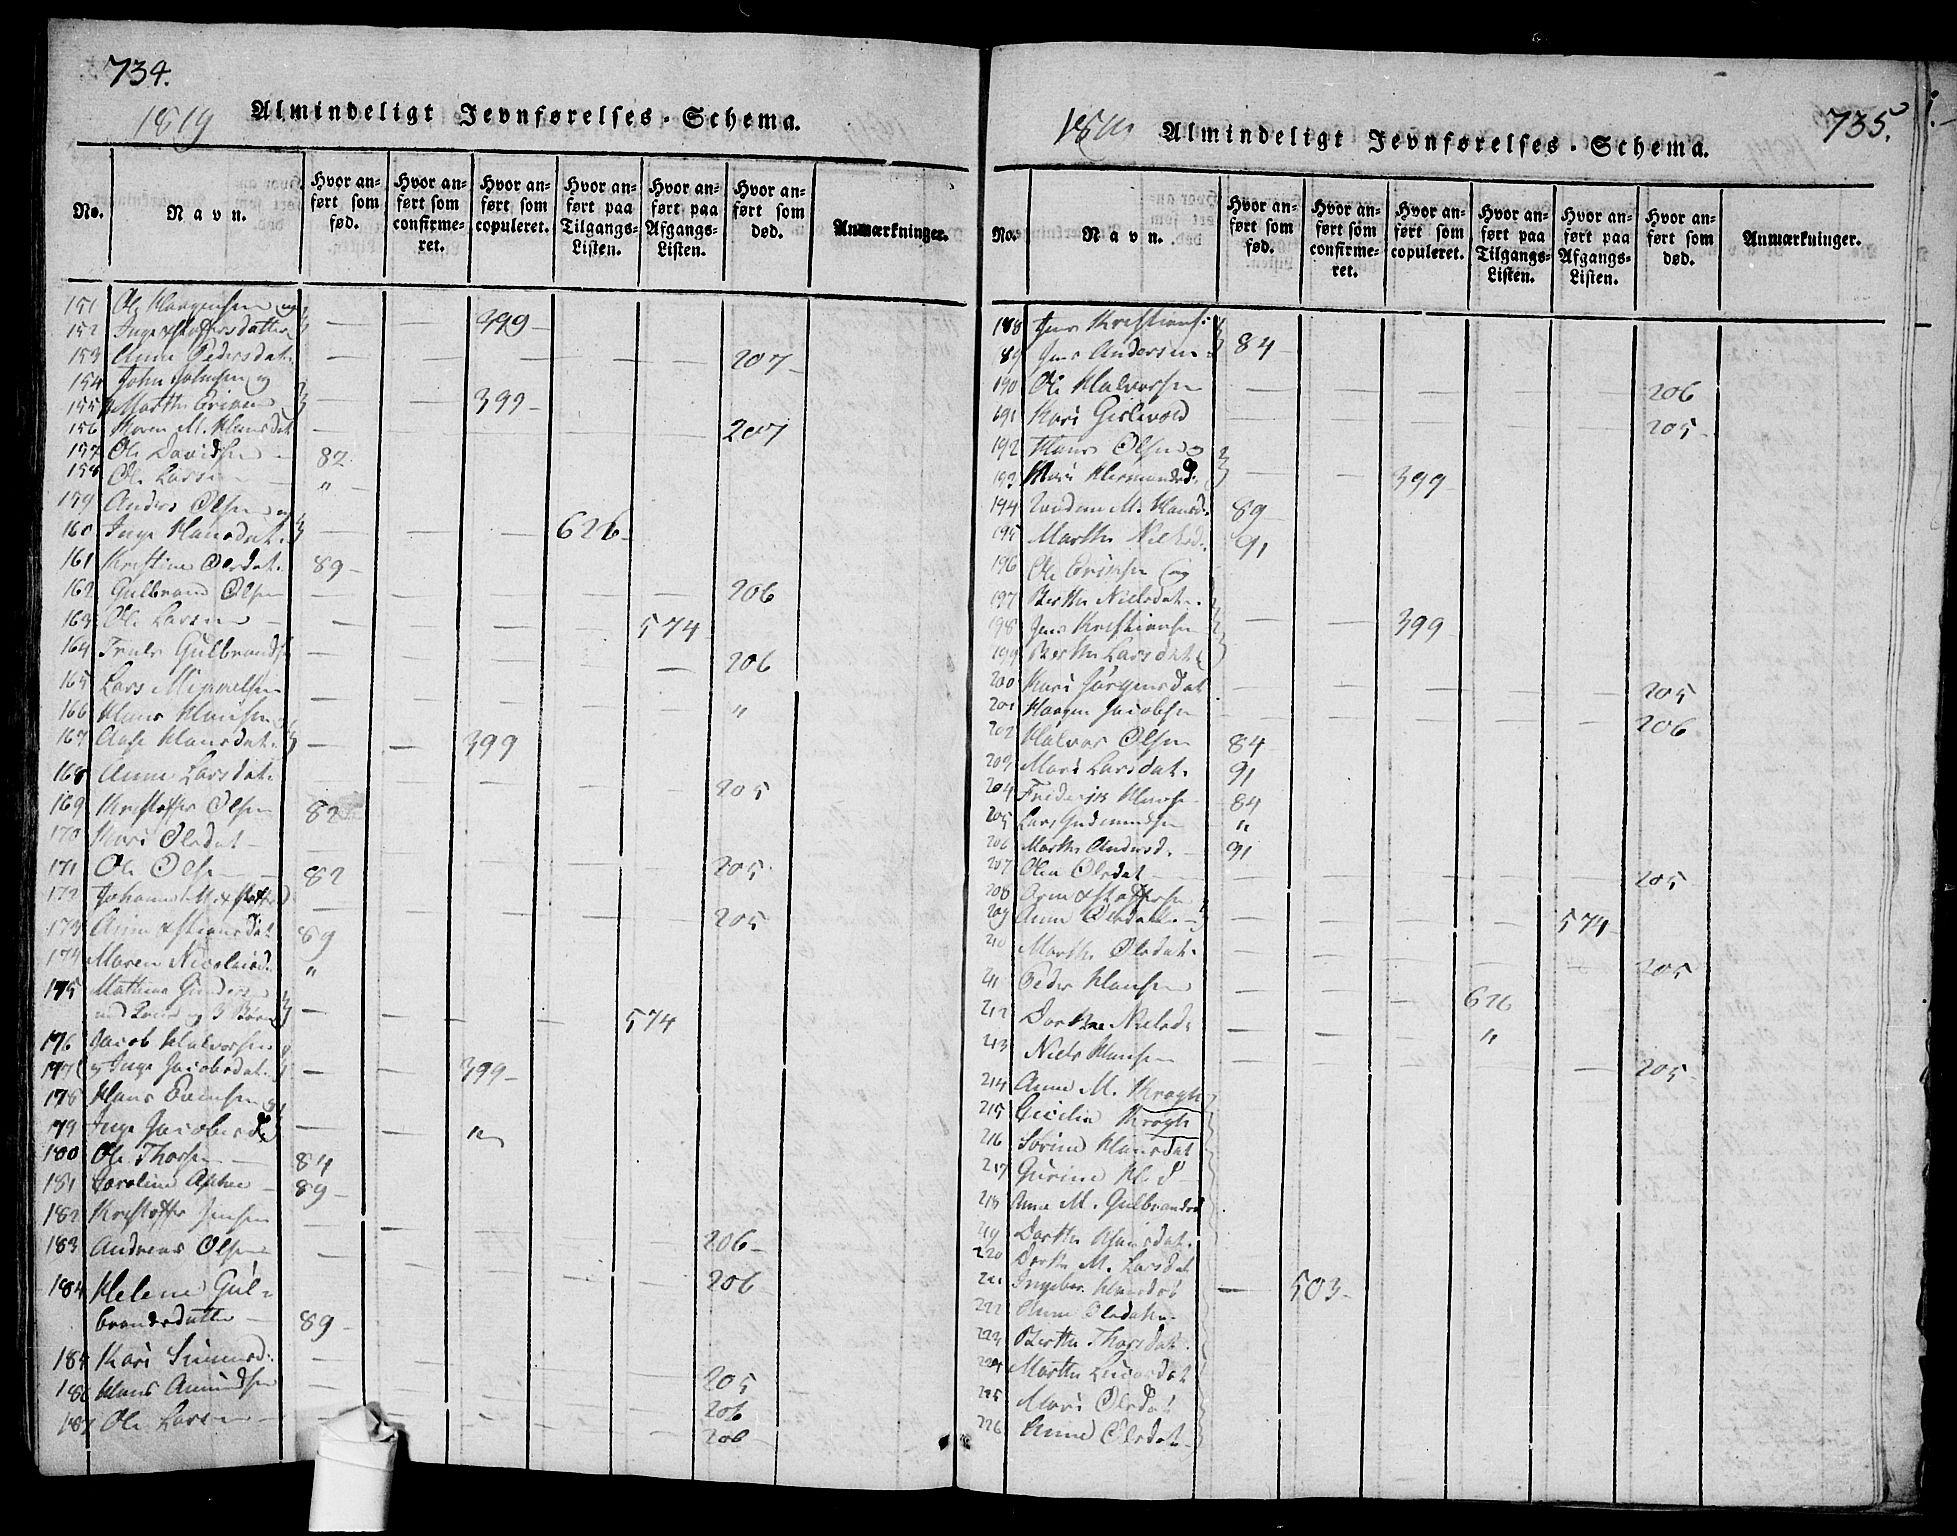 734.
1819
Almindeligt Jevnførelses-Schema.
No.
Navn.
Hvor anført som fød.
Hvor anført som confirmeret.
Hvor anført som copuleret.
Hvor anført paa Tilgangs-Listen.
Hvor anført paa Afgangs-Listen.
Hvor anført som død.
Anmærkninger.
151 Ole Haagensen og
152 Inge xstoffersdatter — — 399 -
153 Anne Pedersdat. — — — — — 207 -
154 John Johnsen og
155 Marthe — — 399 -
156 Karen M. Hansdat — — — — — 207
157 Ole Davidsen - 82
158 Ole Larsen — " —
159 Anders Olsen og
160 Inge Hansdat. — — — 626 -
161 Kristine Olesdat. 89 -
162 Gulbrand Olsen — — — — — 206
163 Ole Larsen — — — — 574
164 Truls Gulbrands — — — — — 206
165 Lars Mimmelsen — — — — — "
166 Hans Hansen og
167 Aase Hansdat. — — 399
168 Anne Larsdat. — — — — — 205
169 Kristoffer Olsen 82
170 Kari Olsdat — — — — — 205
171 Ole Olsen — 82
172 Johanne M. xstoffersd — — — — — 205
173 Anne xstiansdat 89
174 Maren Nicolaisd. "
175 Mathias Gunders
med Kone og 3 Børn — — — — 574
176 Jacob Halvorsen
177 og Inge Jacobsdat. — — 399 -
178 Hans Evensen og
179 Inge Jacobsd — — "
180 Ole Thorsen — 84
181 Caroline — 89 -
182 Kristoffer Jensen — — — — — 206 -
183 Andreas Olsen — — — — — 206
184 Helene Gulbrandsdatter — 89 -
185 Kari Simensd. — — — — — 205
186 Hans Amundsen — — — — — 206
187 Ole Larsen — — — — — 206
735.
Almindeligt Jevnførelses-Schema.
No.
Navn.
Hvor anført som fød.
Hvor anført som confirmeret.
Hvor anført som copuleret.
Hvor anført paa Tilgangs-Listen.
Hvor anført paa Afgangs-Listen.
Hvor anført som død.
Anmærkninger.
188 Jens Kristians.
89 Jens Andersen 84
190 Ole Halvorsen — — — — — 206
191 Kari Gislevold — — — — — 205 -
192 Hans Olsen og
193 Mari Hermandsd. — — 399 -
194 M. Hansd. 89 -
195 Marthe Nielsd. 91
196 Ole Ericsen og
197 Berthe Nielsdat.
198 Jens Kristiansen — — 399
199 Berthe Larsdat
200 Kari Jørgensdat — — — — — 205
201 Haagen Jacobsen — — — — — 206
202 Halvor Olsen 84
203 Mari Larsdat. 91
204 Friderich Hansen 84
205 Lars Gudmundsen "
206 Marthe Andersd. 91
207 Olea Olsdat — — — — — 205
208 Arne xstoffersen
209 Anne Olsdat. — — — — 574
210 Marthe Olsdat. — — — — — 205
211 Peder Hansen — — — 626
212 Dorthe Nielsd. — — — "
213 Niels Hansen — — — — — 205 -
214 Anne M. Krogh
215 Cecilia Krogh
216 Sørine Hansdat
217 Gurine H. d
218 Anne M. Gulbrandsd
219 Dorthe Hansdat.
220 Dorthe M. Larsdat
221 Ingebor Hansdat — 503 -
222 Anne Olsdatter
223 Berthe Thorsdat.
224 Marthe Lucasdat
225 Mari Olsdat
226 Anne Olsdat